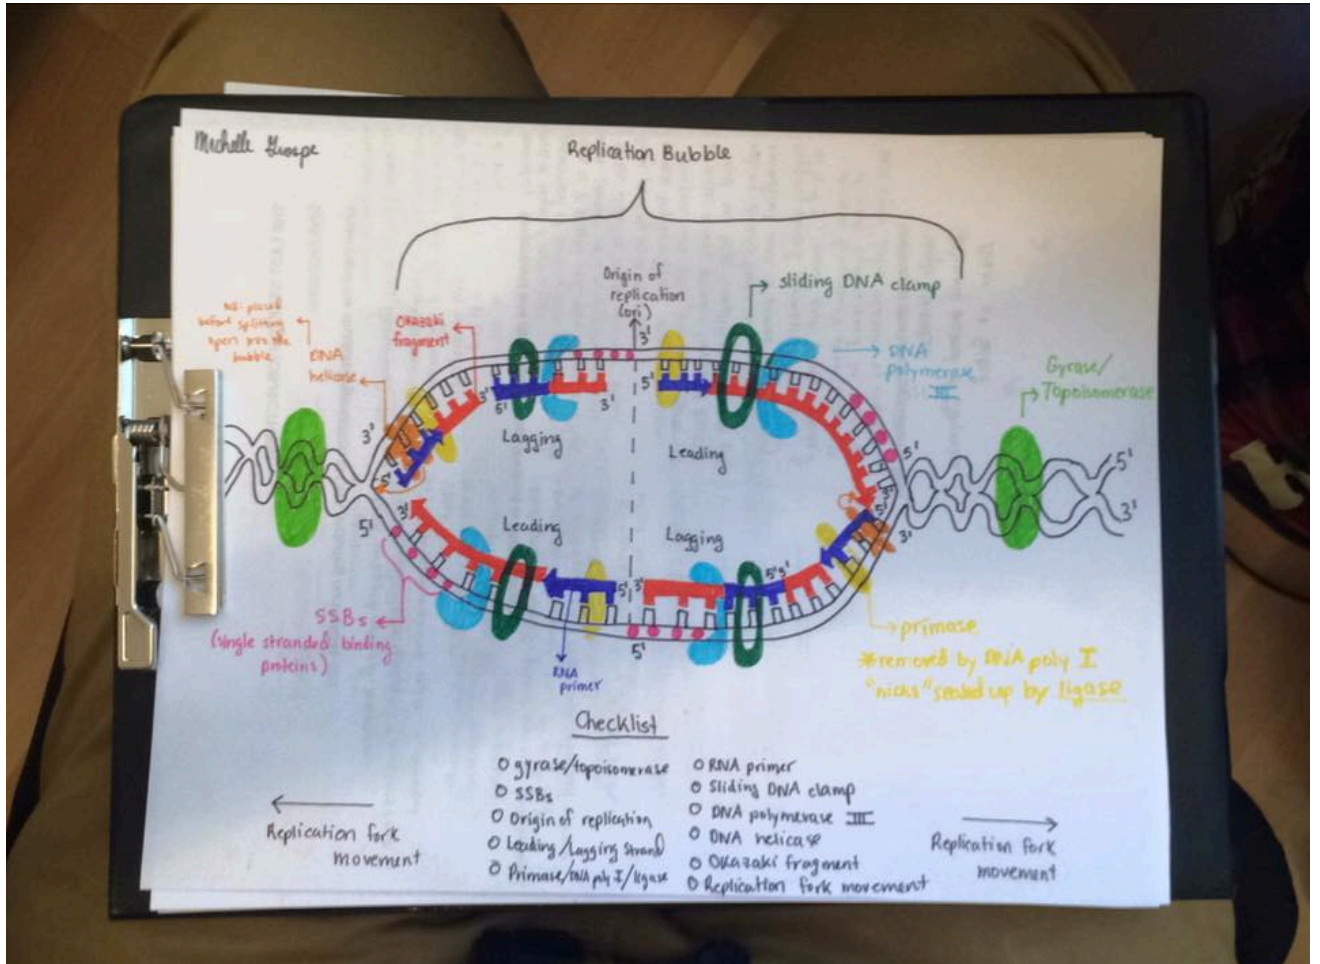 Michelle
Replication Bubble
Origin of
replication
(ori)
sliding DNA clamp
NB: placed
before splitting
open into the
bubble
Okazaki
fragment
DNA
helicase
3'
DNA
polymerase
III
Gyrase/
Topoisomerase
3'
5'
3'
5'
3'
Lagging
Leading
5'
5'
3'
5'
5'
3'
3'
5'
3'
5'
Leading
Lagging
5'
3'
5'3'
SSBs
(single stranded binding
proteins)
5'
RNA
primer
primase
*removed by DNA poly I
"nicks" sealed up by ligase
Checklist
gyrase/topoisomerase
SSBs
Origin of replication
Leading/Lagging strand
Primase/DNA poly I/ligase
RNA primer
Sliding DNA clamp
DNA polymerase III
DNA helicase
Okazaki fragment
Replication fork movement
Replication fork
movement
Replication fork
movement